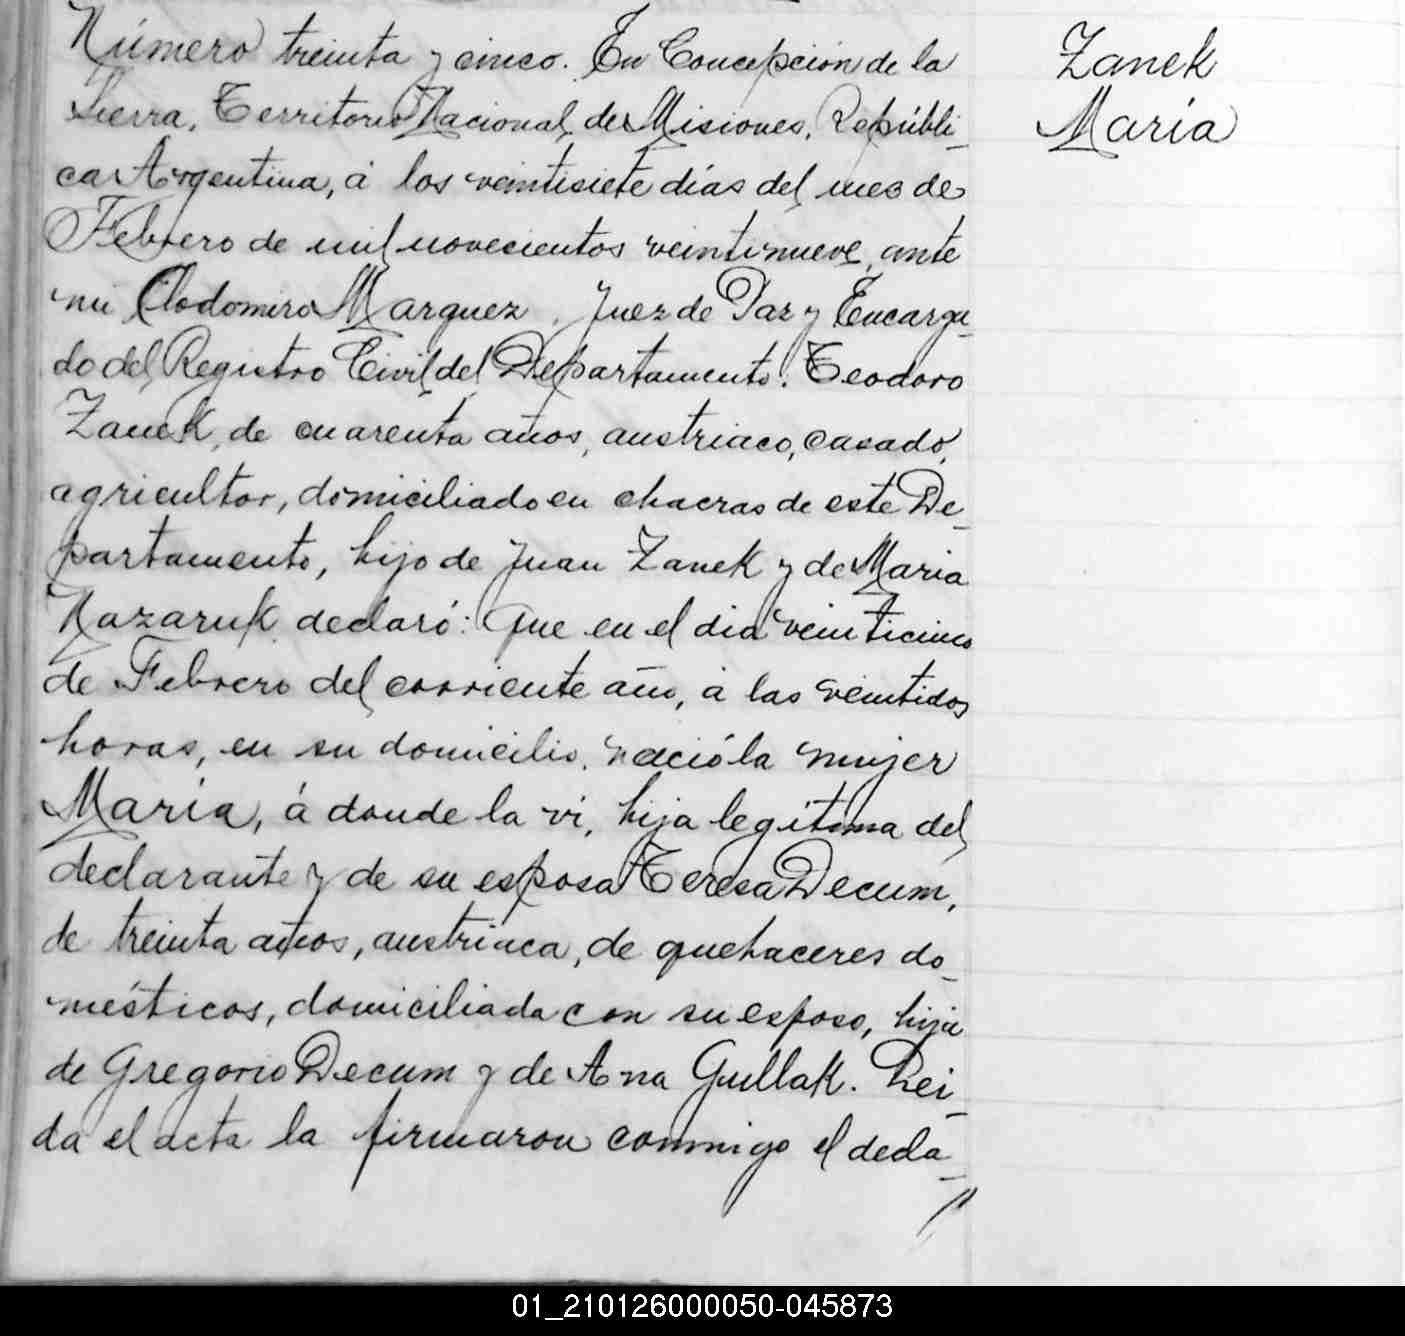 Número treinta y cinco. En Concepción de la
Sierra, Territorio Nacional de Misiones, Repúbli-
ca Argentina, á los veintisiete días del mes de
Febrero de mil novecientos veintinueve, ante
mi Clodomiro Marquez, Juez de Paz y Encarga-
do del Registro Civil del Departamento: Teodoro
Zanek, de cuarenta años, austriaco, casado,
agricultor, domiciliado en chacras de este De-
partamento, hijo de Juan Zanek y de Maria
Nazaruk declaró: Que en el dia veinticinco
de Febrero del corriente año, á las veintidos
horas, en su domicilio, nació la mujer
María, á donde la vi, hija legítima del
declarante y de su esposa Teresa Decum,
de treinta años, austriaca, de quehaceres do-
mésticos, domiciliada con su esposo, hija
de Gregorio Decum y de Ana Gullak. Lei-
da el acta la firmaron conmigo el decla-
//
Zanek
María
01_210126000050-045873